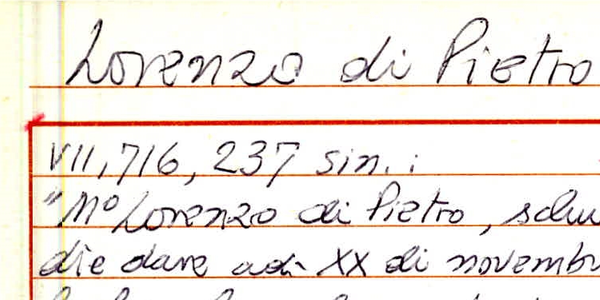 Lorenzo di Pietro
VII, 716, 237 sin.:
"Mº Lorenzo di Pietro,
die dare adì XX di